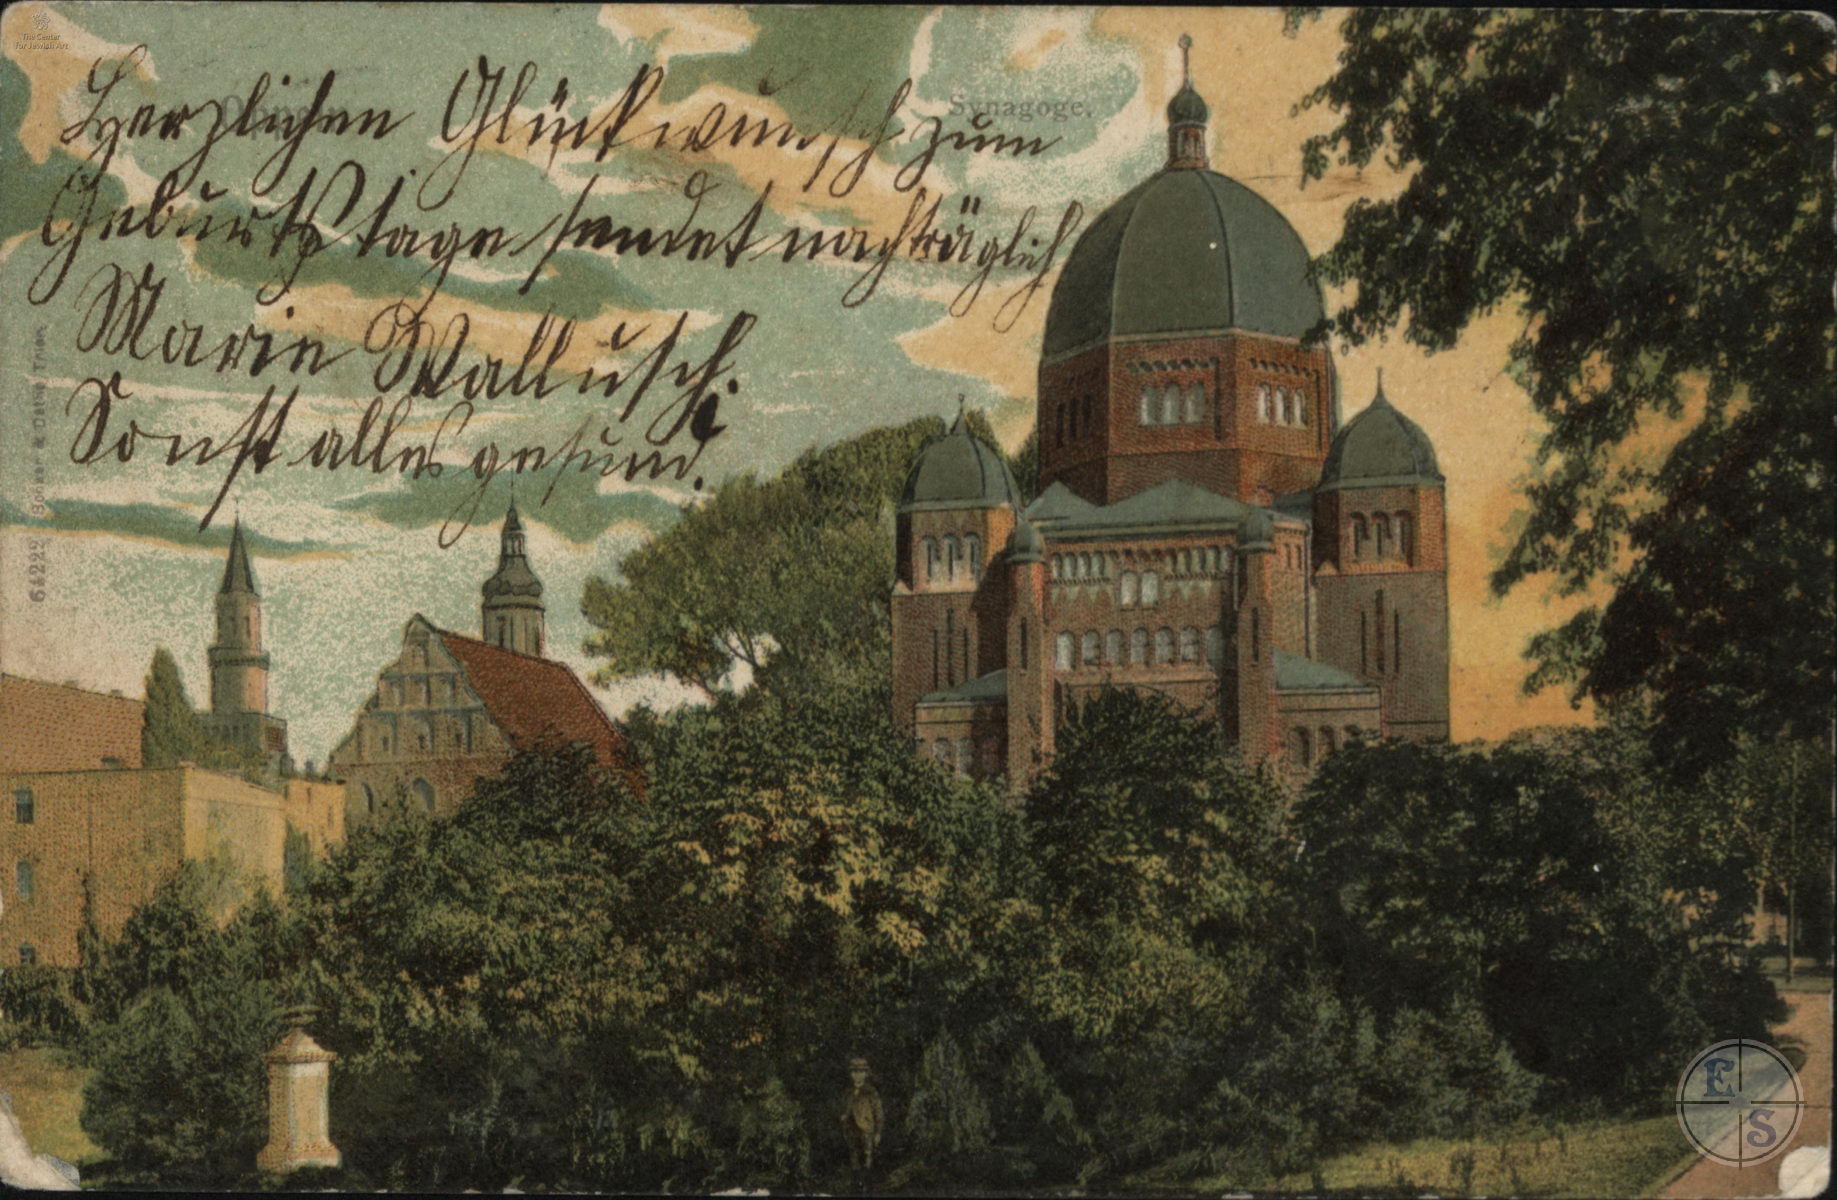 The Center
for Jewish Art
Oppeln
Synagoge.
Herzlichen Glückwunsch zum
Geburtstage sendet nachträglich
Marie Wallusch.
Sonst alles gesund.
61222 Schaar & Dathe Trier
E S